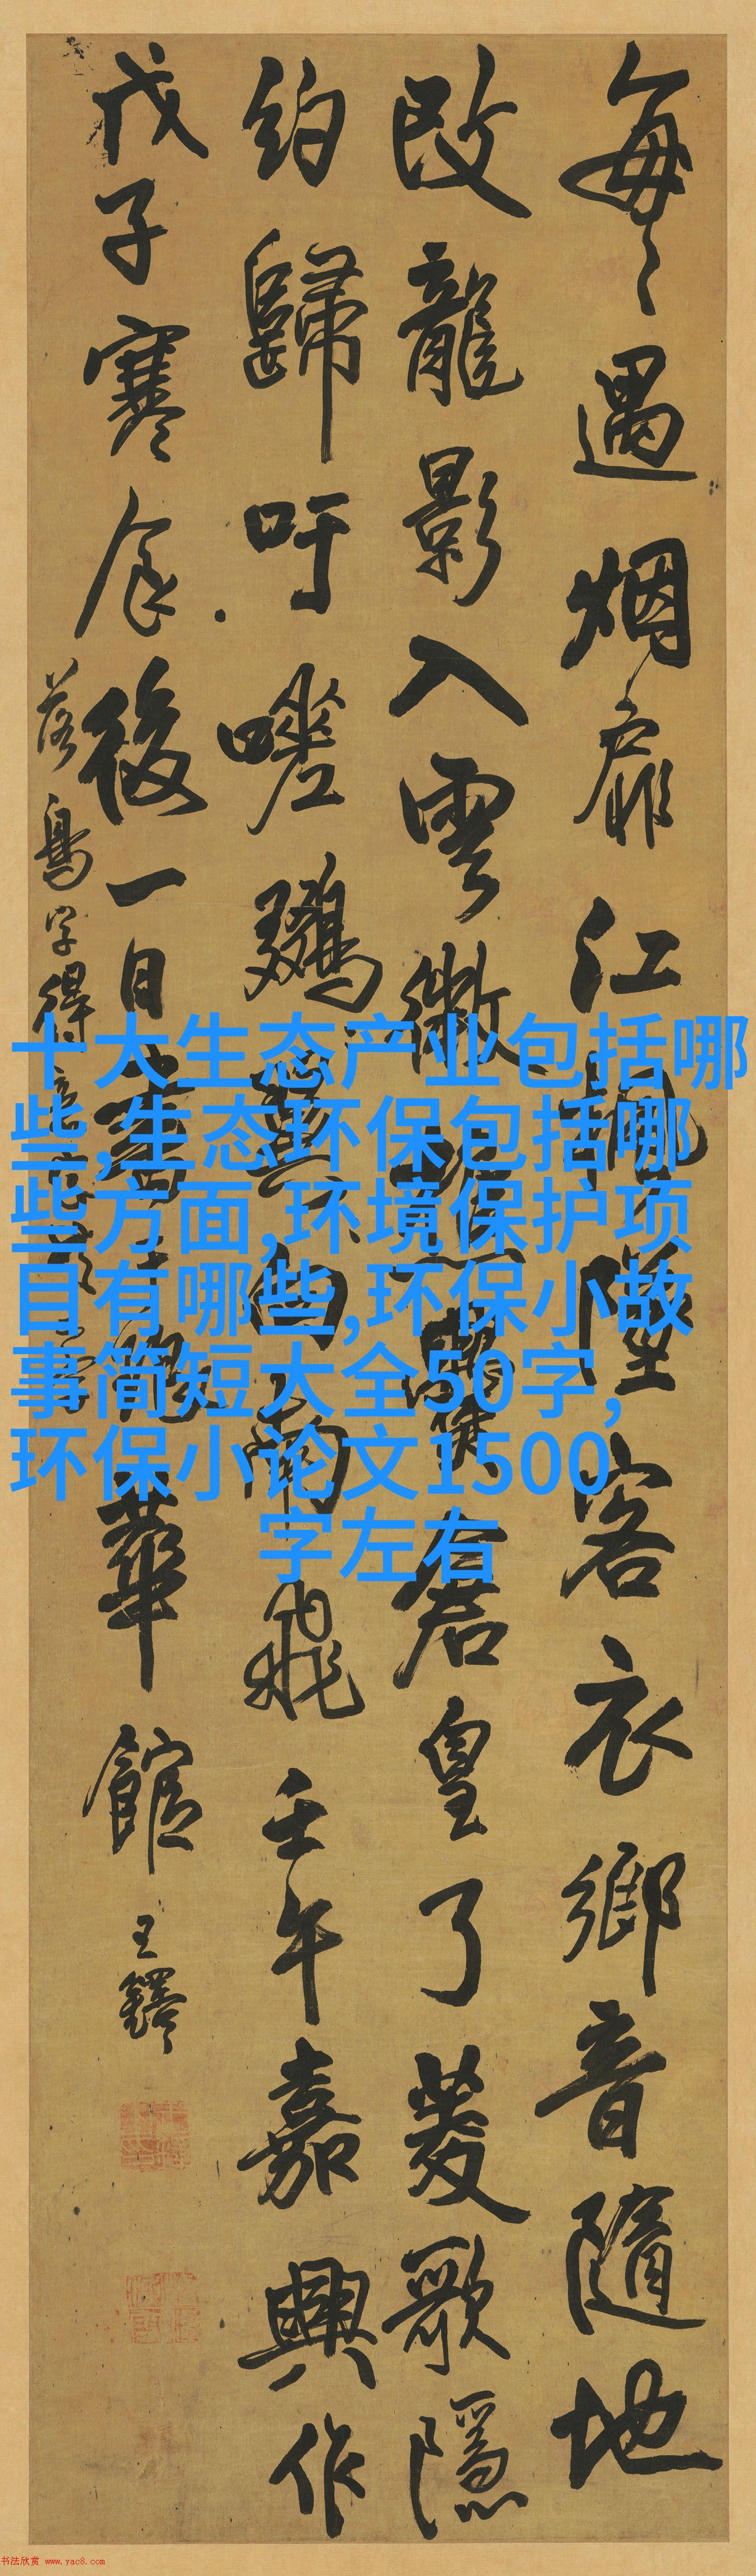 每〻遇烟扉江帆墮客衣鄉音隨地
改龍影入雲微蒼皇了菱歌隱
約歸吁嗟南飛壬午嘉興作
戊子寒食後一日書華館
王鐸
落鳥字得
十大生态产业包括哪
些,生态环保包括哪
些方面,环境保护项
目有哪些,环保小故
事简短大全50字,
环保小论文1500
字左右
书法欣赏 www.yac8.com